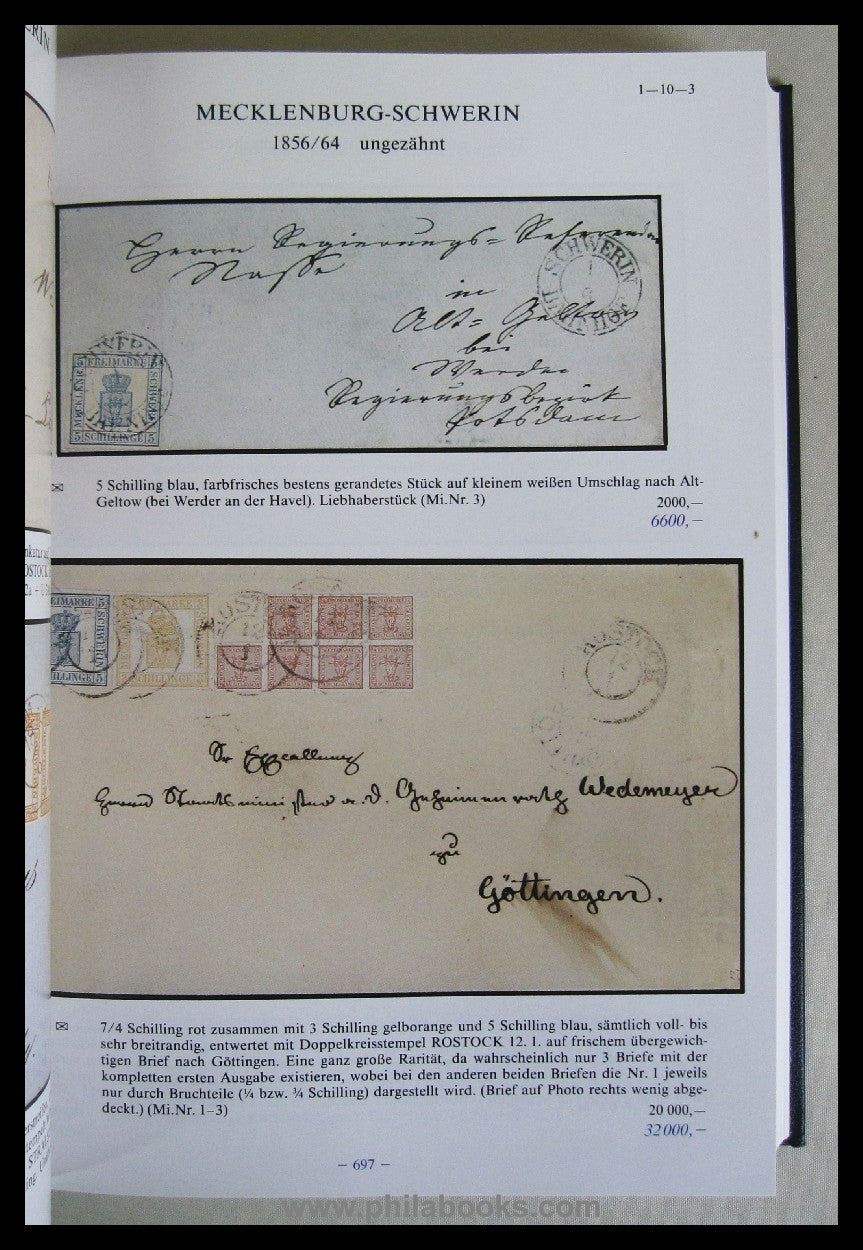 1—10—3
MECKLENBURG-SCHWERIN
1856/64 ungezähnt
Herrn Regierungs=
Nasse
SCHWERIN
in
Alt=
bei
Werder
Regierungsbezirk
Potsdam
5 FREIMARKE 5
SCHWERIN
5 SCHILLINGE 5
5 Schilling blau, farbfrisches bestens gerandetes Stück auf kleinem weißen Umschlag nach Alt-
Geltow (bei Werder an der Havel). Liebhaberstück (Mi.Nr. 3) 2000,—
6600,—
SCHWERIN
ROSTOCK
12
1
Herrn Staatsminister a. D. Geheimen rath Wedemeyer
zu
Göttingen.
7/4 Schilling rot zusammen mit 3 Schilling gelborange und 5 Schilling blau, sämtlich voll- bis
sehr breitrandig, entwertet mit Doppelkreisstempel ROSTOCK 12. 1. auf frischem übergewich-
tigen Brief nach Göttingen. Eine ganz große Rarität, da wahrscheinlich nur 3 Briefe mit der
kompletten ersten Ausgabe existieren, wobei bei den anderen beiden Briefen die Nr. 1 jeweils
nur durch Bruchteile (¼ bzw. ¾ Schilling) dargestellt wird. (Brief auf Photo rechts wenig abge-
deckt.) (Mi.Nr. 1–3) 20 000,—
32000,—
– 697 –
www.philabooks.com